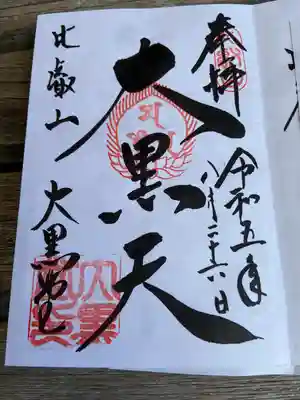 奉拝
令和五年
八月二十六日
大黒天
比叡山 大黒堂